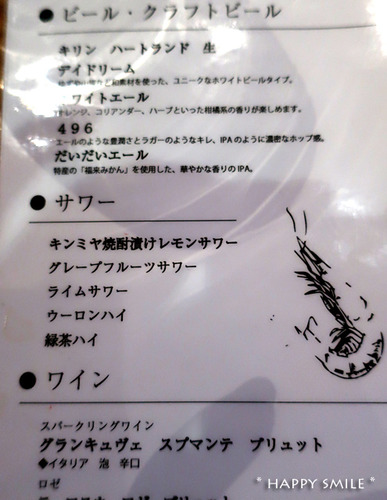 ● ビール・クラフトビール
キリン ハートランド 生
デイドリーム
素材を使った、ユニークなホワイトビールタイプ。
ワイトエール
オレンジ、コリアンダー、ハーブといった柑橘系の香りが楽しめます。
496
エールのような豊潤さとラガーのようなキレ、IPAのように濃密なホップ感。
だいだいエール
特産の「福来みかん」を使用した、華やかな香りのIPA。
● サワー
キンミヤ焼酎漬けレモンサワー
グレープフルーツサワー
ライムサワー
ウーロンハイ
緑茶ハイ
● ワイン
スパークリングワイン
グランキュヴェ スプマンテ ブリュット
◆イタリア 泡 辛口
ロゼ
* HAPPY SMILE *